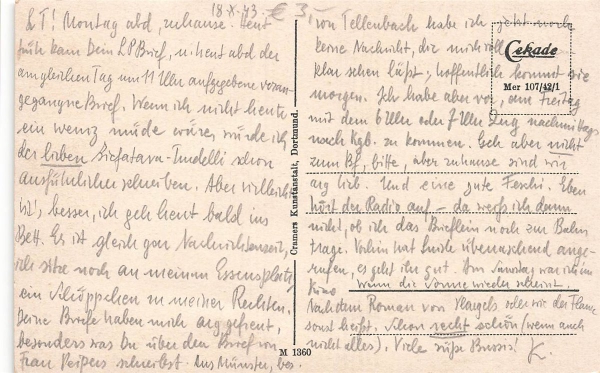 18.X.43
€ 3.-
L.T.! Montag abd, zuhause. Heut
früh kam Dein LPBrief, u. heut abd der
am gleichen Tag um 11 Uhr aufgegebene voran-
gegangne Brief. Wenn ich nicht heute
ein wenig müde wäre, würde ich
der lieben schon
ausführlicher schreiben. Aber vielleicht
ist's besser, ich geh heut bald ins
Bett. Es ist gleich ganz Nachrichtenzeit,
ich sitze noch an meinem Essensplatz,
ein Schöppchen in meiner Rechten.
Deine Briefe haben mich arg gefreut,
besonders was Du über den Brief von
Frau schreibst. Aus Münster, bes.
Cramers Kunstanstalt, Dortmund.
M 1360
Cekade
Mer 107/42/1
von Tellenbach habe ich jetzt noch
keine Nachricht, die mich voll
klar sehen läßt; hoffentlich kommt sie
morgen. Ich habe aber vor, am Freitag
mit dem 6 Uhr oder 7 Uhr Zug nachmittags
nach Kgb. zu kommen. Geh aber nicht
zum Bf, bitte, aber zuhause sind wir
arg lieb. Und eine gute Eben
hört der Radio auf – da werfs ich dann
nicht, ob ich das Brieflein noch zur Bahn
trage. Vorhin hat überraschend ange-
rufen, es geht ihr gut. Am Samstag war ich im
Kino wenn die Sonne wieder scheint.
Nach dem Roman von oder wie der Flame
sonst heißt. Schon recht schön (wenn auch
nicht alles). Viele süße Bussis! K.